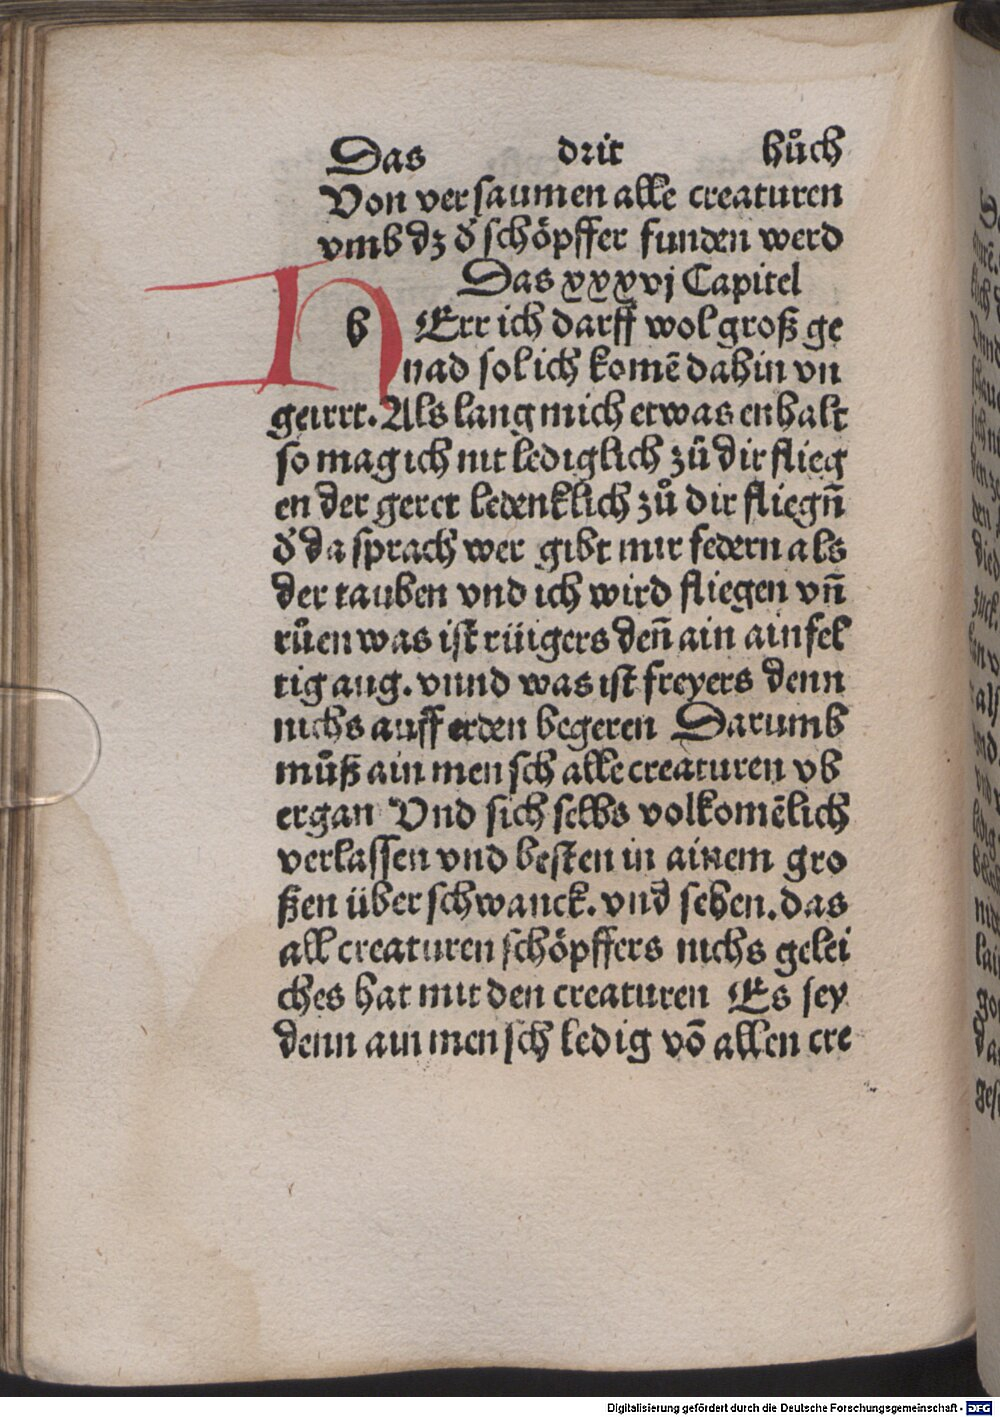 Das drit bůch
Von versaumen alle creaturen
vmb dz d̕ schöpffer funden werd
Das xxxvj Capitel
h Err ich darff wol groß ge
nad sol ich komē dahin vn
geirrt. Als lang mich etwas enhalt
so mag ich nit lediglich zů dir flieg
en der geret ledenklich zů dir fliegn̄
d̕ da sprach wer gibt mir federn als
der tauben vnd ich wird fliegen vn̄
růen was ist rüigers den̄ ain ainfel
tig aug. vnnd was ist freyers denn
nichs auff erden begeren Darumb
můß ain mensch alle creaturen vb
ergan Vnd sich selbs volkomēlich
verlassen vnd besten in ainem gro
ßen überschwanck. vnd sehen. das
all creaturen schöpffers nichs gelei
ches hat mit den creaturen Es sey
denn ain mensch ledig vō allen cre
Digitalisierung gefördert durch die Deutsche Forschungsgemeinschaft - DFG